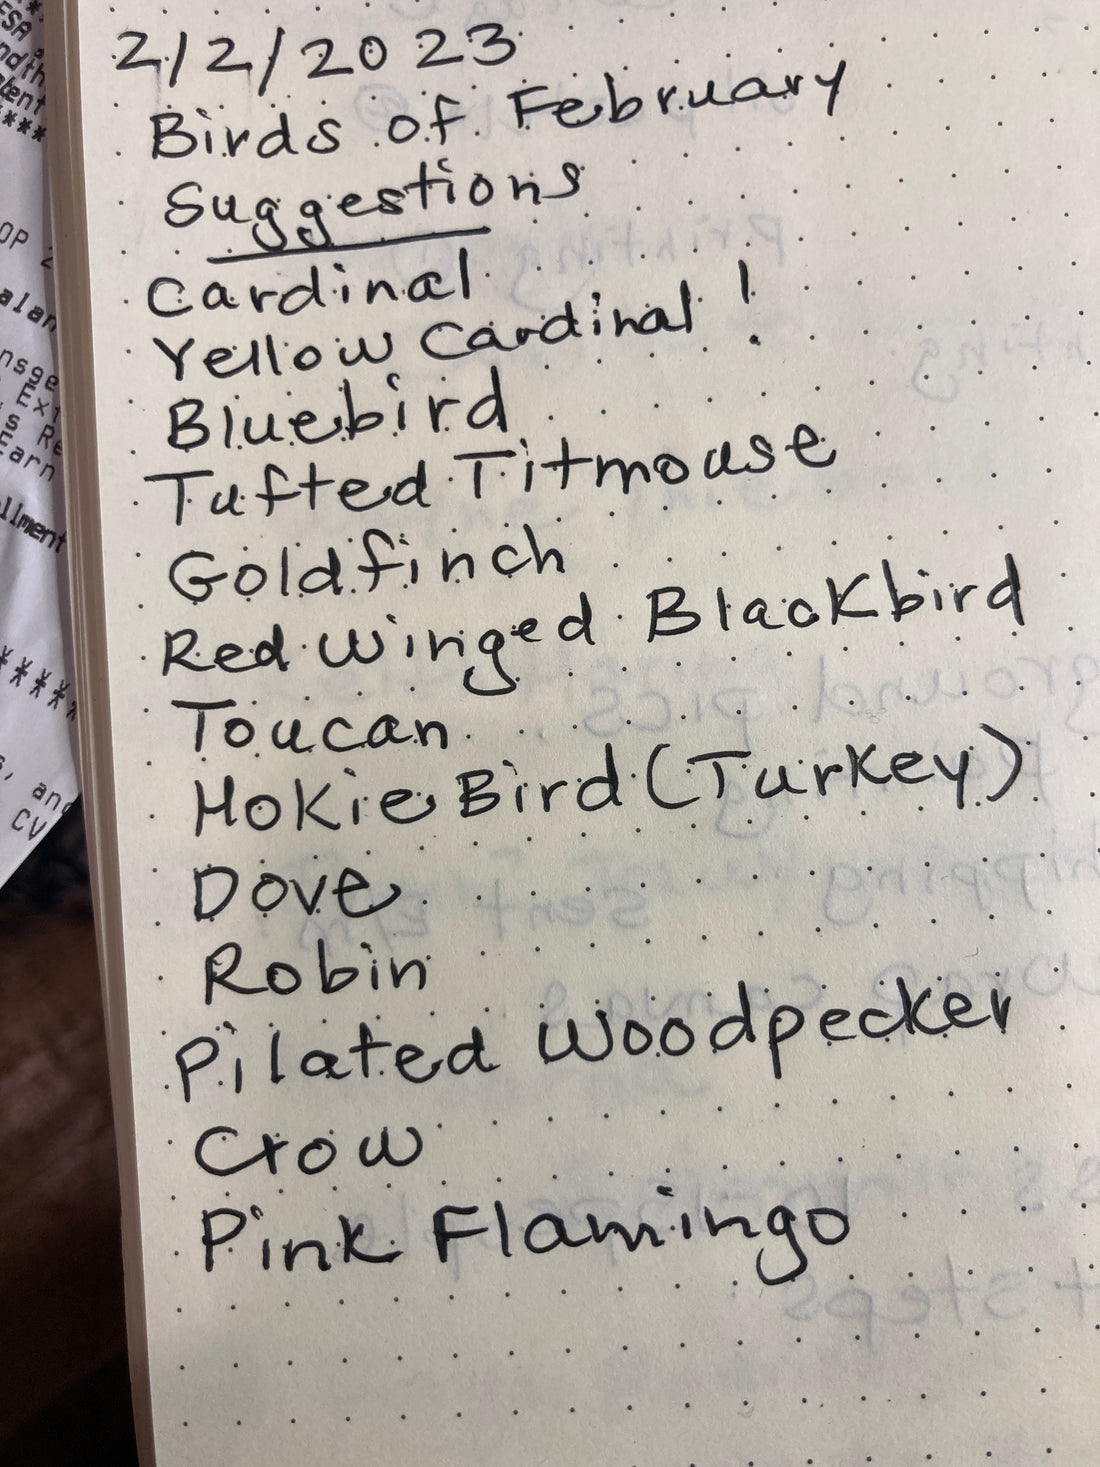 2/2/2023
Birds of February
Suggestions
Cardinal
Yellow Cardinal !
Bluebird
Tufted Titmouse
Goldfinch
Red Winged Blackbird
Toucan
Hokie Bird (Turkey)
Dove
Robin
Pilated Woodpecker
Crow
Pink Flamingo